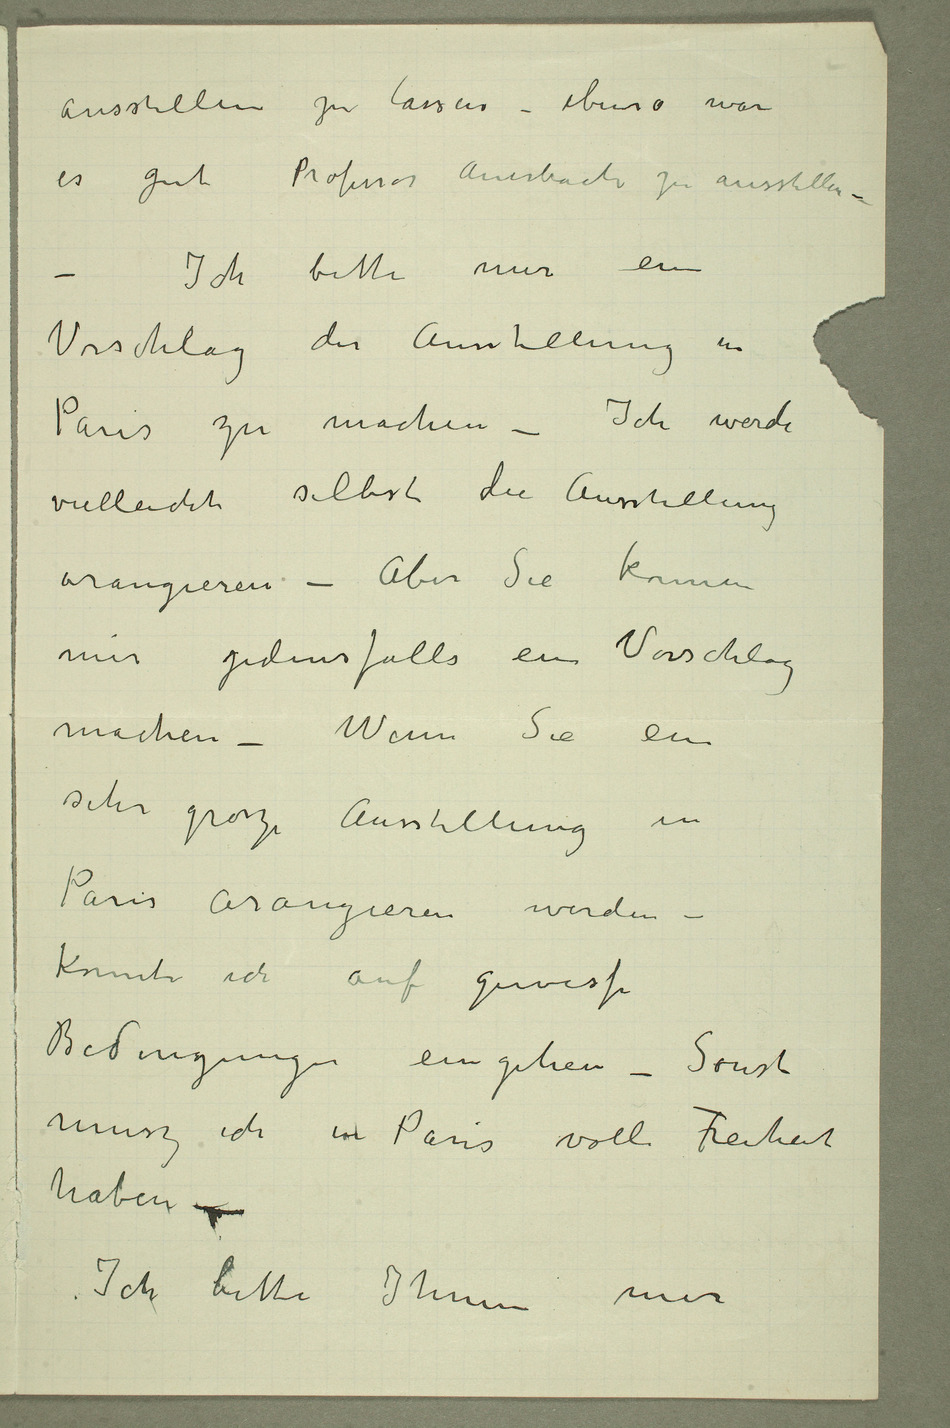 ausstellen zu lassen – ebenso wär
es gut Professor Auerbach zu ausstellen –
– Ich bitte mir ein
Vorschlag der Ausstellung in
Paris zu machen – Ich werde
vielleicht selbst die Ausstellung
arangieren – Aber Sie können
mir jedensfalls ein Vorschlag
machen – Wenn Sie ein
sehr grosze Ausstellung in
Paris arangieren werden –
Konnte ich auf gewisse
Bedingungen eingehen – Sonst
musz ich in Paris volle Freiheit
haben –
Ich bitte Ihnen mir